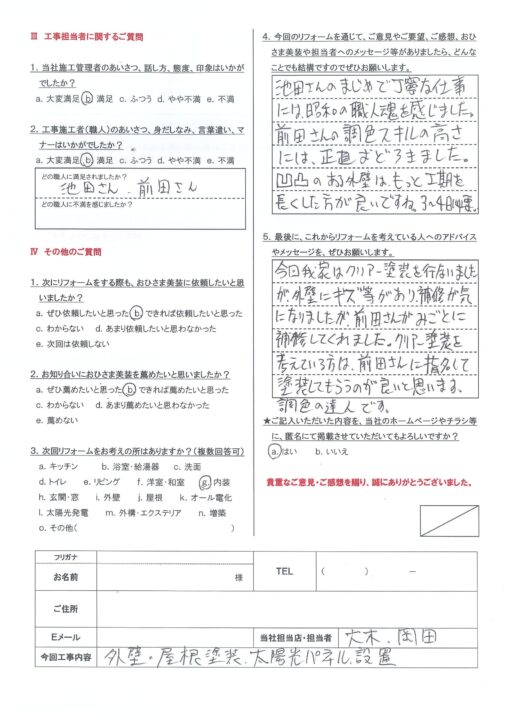 Ⅲ 工事担当者に関するご質問
1. 当社施工管理者のあいさつ、話し方、態度、印象はいかが
でしたか?
a. 大変満足 b 満足 c. ふつう d. やや不満 e. 不満
2. 工事施工者(職人)のあいさつ、身だしなみ、言葉遣い、マ
ナーはいかがでしたか?
a. 大変満足 b 満足 c. ふつう d. やや不満 e. 不満
どの職人に満足されましたか?
池田さん、前田さん
どの職人に不満を感じましたか?
Ⅳ その他のご質問
1. 次にリフォームをする際も、おひさま美装に依頼したいと思
いましたか?
a. ぜひ依頼したいと思った b できれば依頼したいと思った
c. わからない d. あまり依頼したいと思わなかった
e. 次回は依頼しない
2. お知り合いにおひさま美装を薦めたいと思いましたか?
a. ぜひ薦めたいと思った b できれば薦めたいと思った
c. わからない d. あまり薦めたいと思わなかった
e. 薦めない
3. 次回リフォームをお考えの所はありますか?(複数回答可)
a. キッチン b. 浴室・給湯器 c. 洗面
d. トイレ e. リビング f. 洋室・和室 g 内装
h. 玄関・窓 i. 外壁 j. 屋根 k. オール電化
l. 太陽光発電 m. 外構・エクステリア n. 増築
o. その他( )
4. 今回のリフォームを通じて、ご意見やご要望、ご感想、おひ
さま美装や担当者へのメッセージ等がありましたら、どんな
ことでも結構ですのでぜひお願いします。
池田さんのまじめで丁寧な仕事
には、昭和の職人魂を感じました。
前田さんの調色スキルの高さ
には、正直おどろきました。
凹凸のある外壁は、もっと工期を
長くした方が良いですね。3〜4日必要。
5. 最後に、これからリフォームを考えている人へのアドバイス
やメッセージを、ぜひお願いします。
今回我家はクリアー塗装を行ないました
が、外壁にキズ等があり、補修が気
になりましたが、前田さんがみごとに
補修してくれました。クリアー塗装を
考えている方は、前田さんに指名して
塗装してもらうのが良いと思います。
調色の達人です。
★ご記入いただいた内容を、当社のホームページやチラシ等
に、匿名にて掲載させていただいてもよろしいですか?
a. はい b. いいえ
貴重なご意見・ご感想を賜り、誠にありがとうございました。
フリガナ
お名前 様 TEL ( ) −
ご住所
Eメール 当社担当店・担当者 大木、岡田
今回工事内容 外壁・屋根塗装、太陽光パネル設置